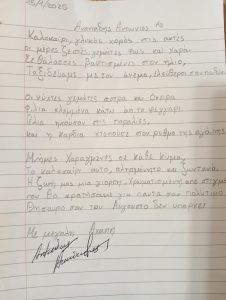 15/9/2025
Αναπιδης Αντωνιος Α2
Καλοκαιρι, γλυκός χορος στις ακτές
οι μερες ζεστές, γεμάτες φως και χαρά
Σε θάλασσες βαφτισμένες στον ήλιο,
Ταξιδεύαμε με τον άνεμο, ελεύθεροι
Οι νύχτες γεμάτες άστρα και όνειρα
φιλια κλεμμένα κατω απ'το φεγγάρι
Γέλια ηχουσαν στις παραλίες,
και η καρδια χτυπουσε στον ρυθμο της αγάπης
Μνήμες χαραγμένες σε κάθε κυμα,
Το καλοκαίρι αυτο, αλησμόνητο και ζωντανό.
Η ζωή μας μια γιορτη, χρωματισμένη απο στιγμές
που θα κρατήσουμε για πάντα σαν πολύτιμο
θησαυρο σαν τον Αυγουστο δεν υπαρχει
Με μεγάλη Αγαπη